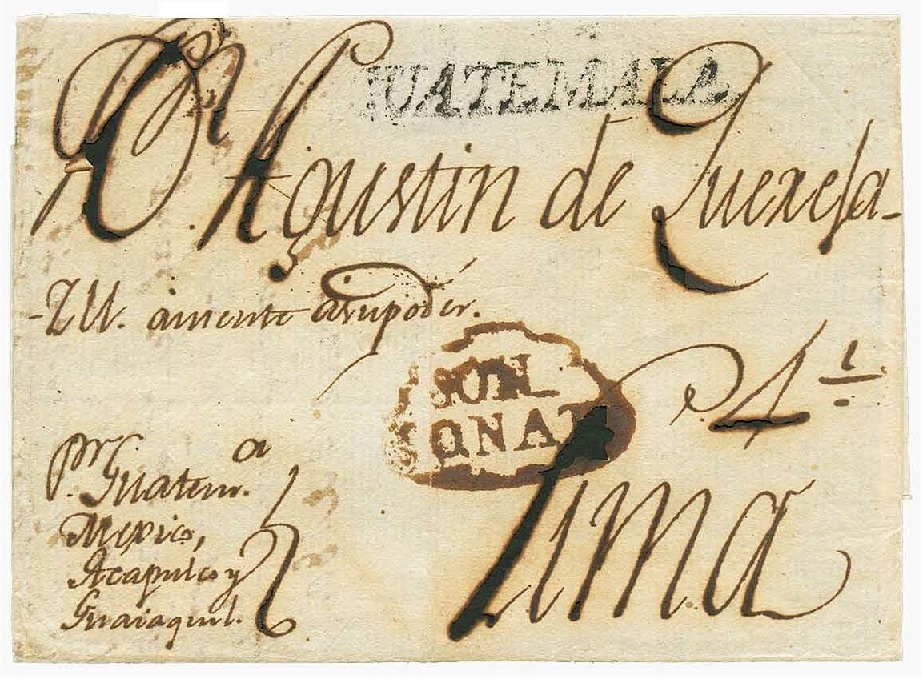 GUATEMALA
Dn. Agustin de Quexesa-
-Zu. amente asupoder.
SON
SONAT
4 1
Lima
pr. Guatem.a
Mexico,
Acapulco y
Guaiaquil.